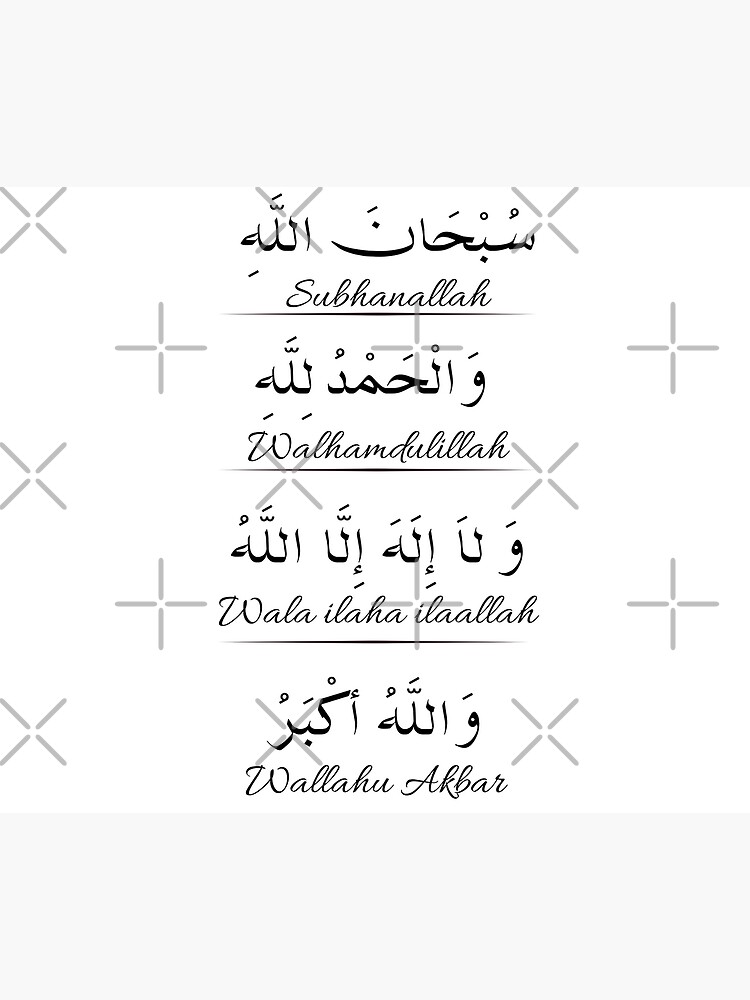 سُبْحَانَ اللَّهِ
Subhanallah
وَالْحَمْدُ لِلَّهِ
Walhamdulillah
وَ لَا إِلَهَ إِلَّا اللَّهُ
Wala ilaha ilaallah
وَاللَّهُ أكْبَرُ
Wallahu Akbar